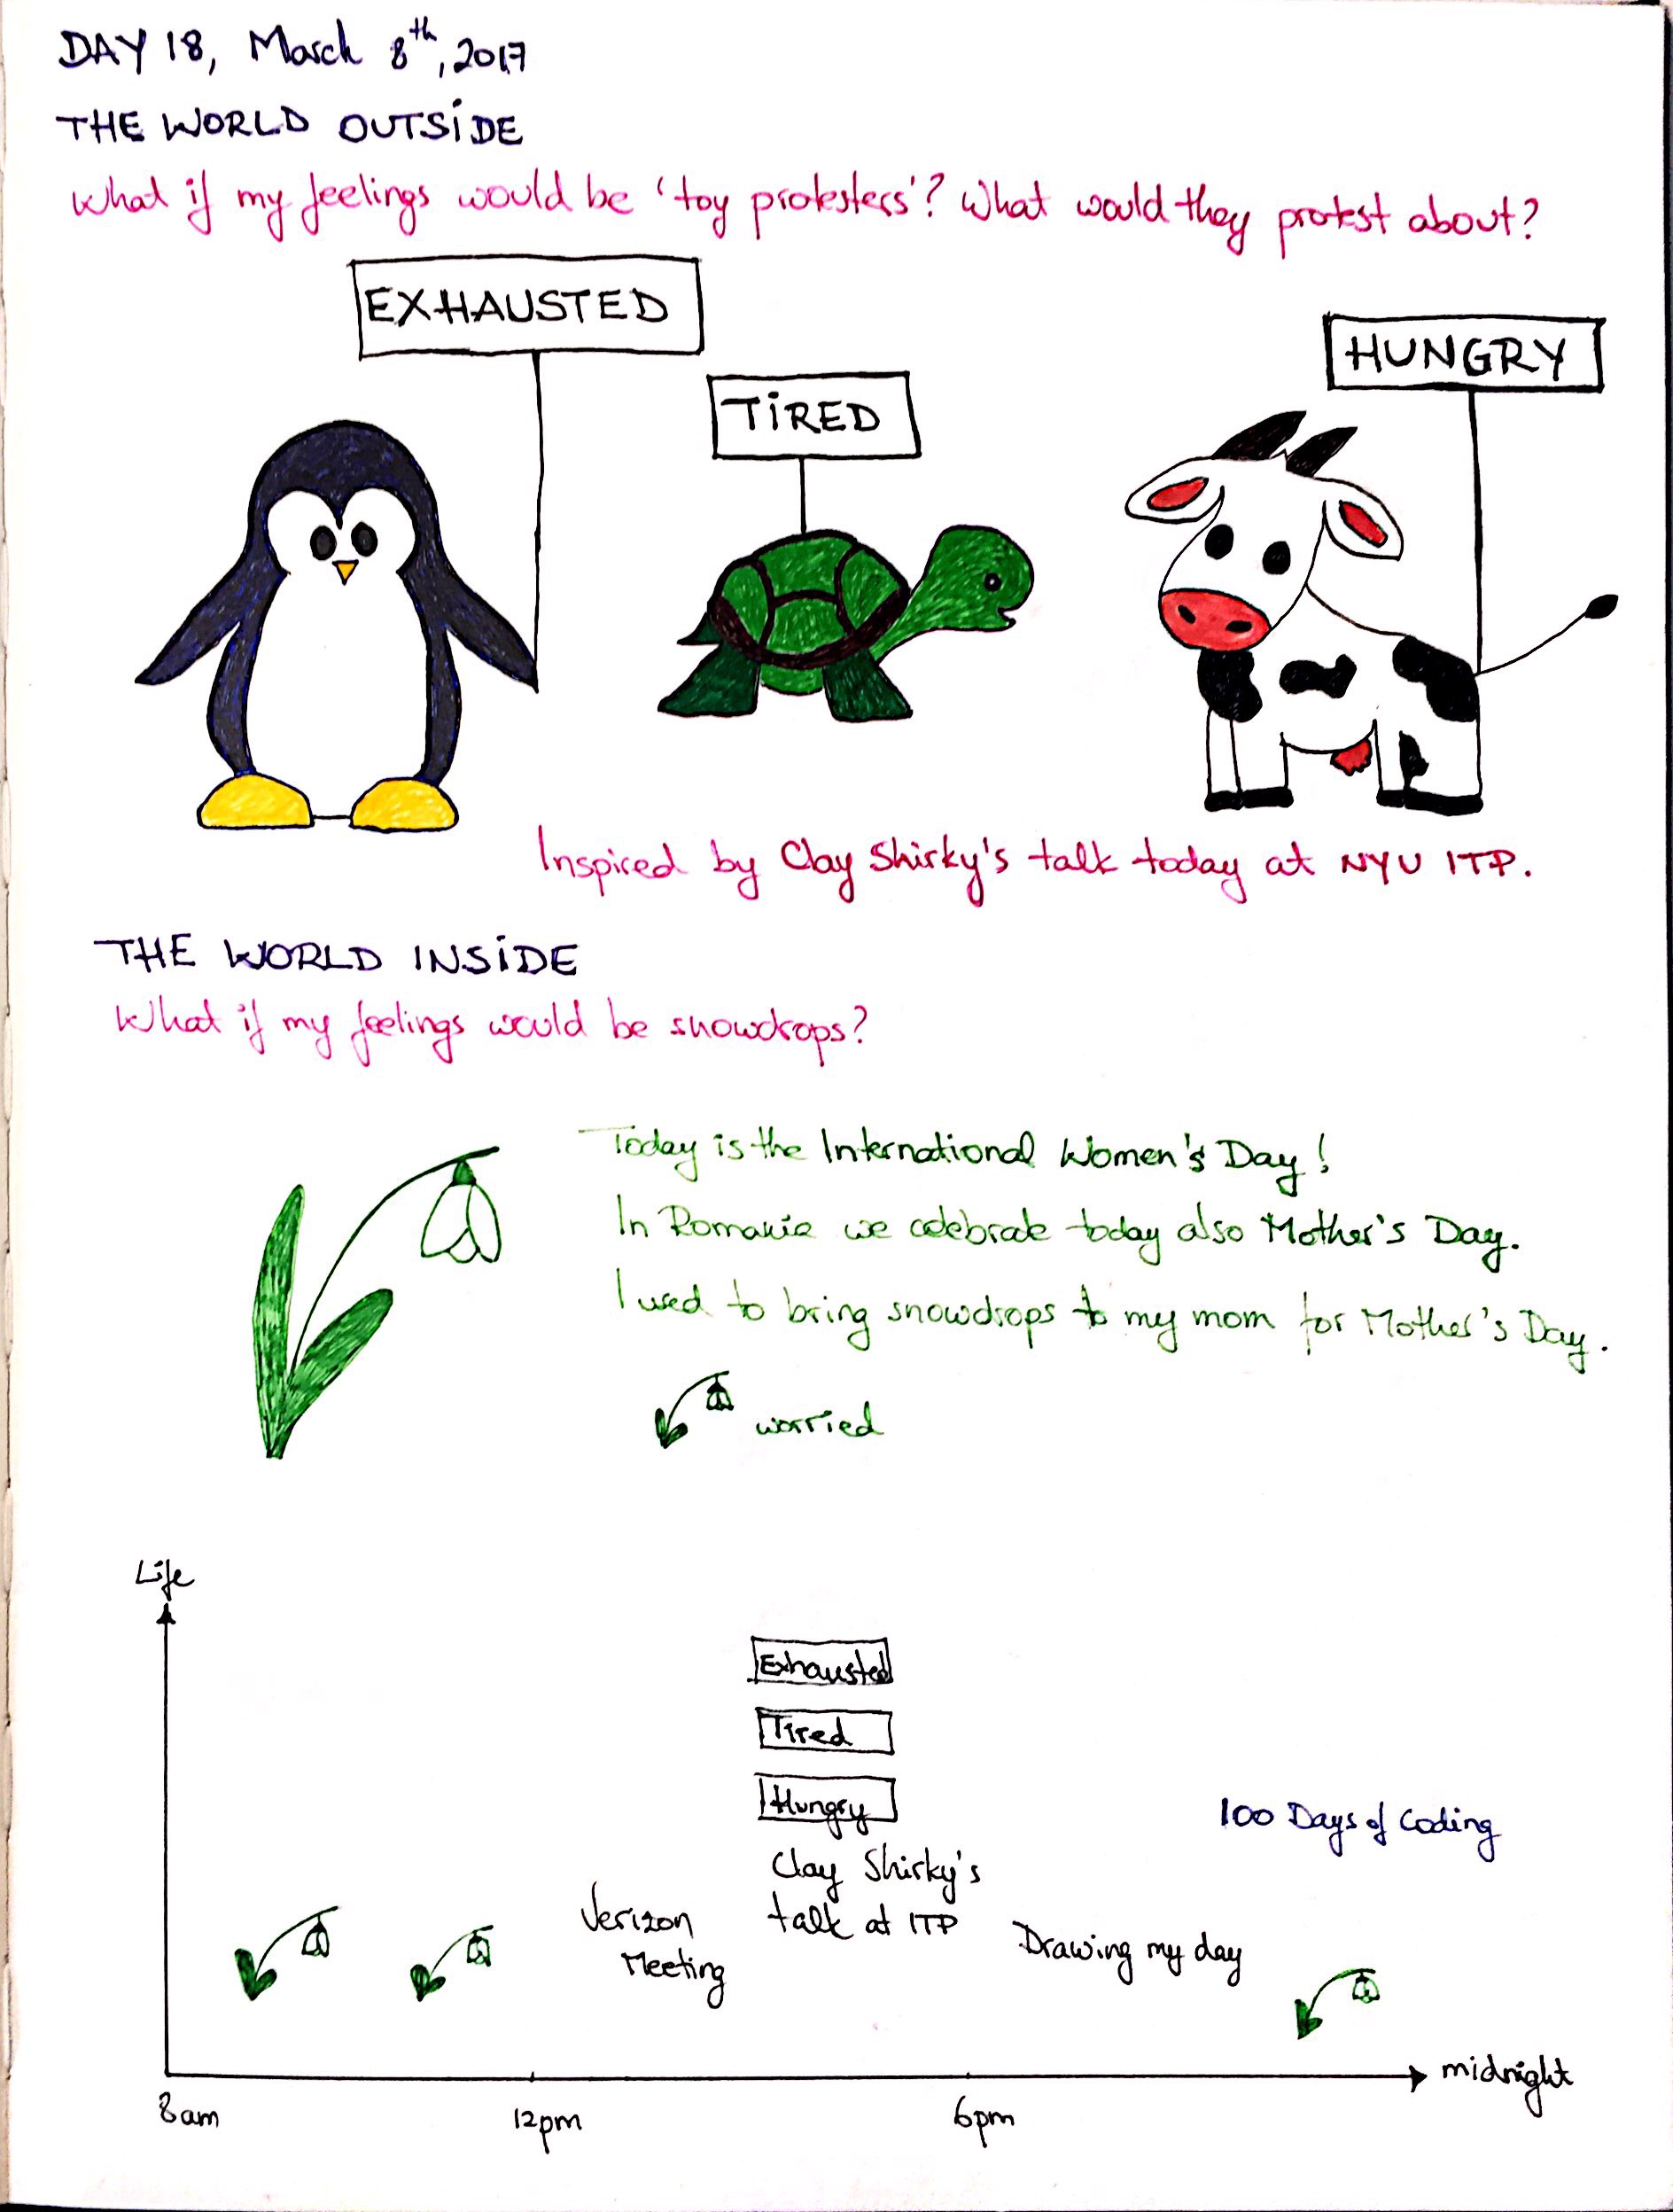 DAY 18, March 8th, 2017
THE WORLD OUTSIDE
What if my feelings would be 'toy protesters'? What would they protest about?
EXHAUSTED
TIRED
HUNGRY
Inspired by Clay Shirky's talk today at NYU ITP.
THE WORLD INSIDE
What if my feelings would be snowdrops?
Today is the International Women's Day!
In Romania we celebrate today also Mother's Day.
I used to bring snowdrops to my mom for Mother's Day.
worried
Life
Exhausted
Tired
Hungry
Clay Shirky's
talk at ITP
Verizon
Meeting
Drawing my day
100 Days of Coding
midnight
8am
12pm
6pm